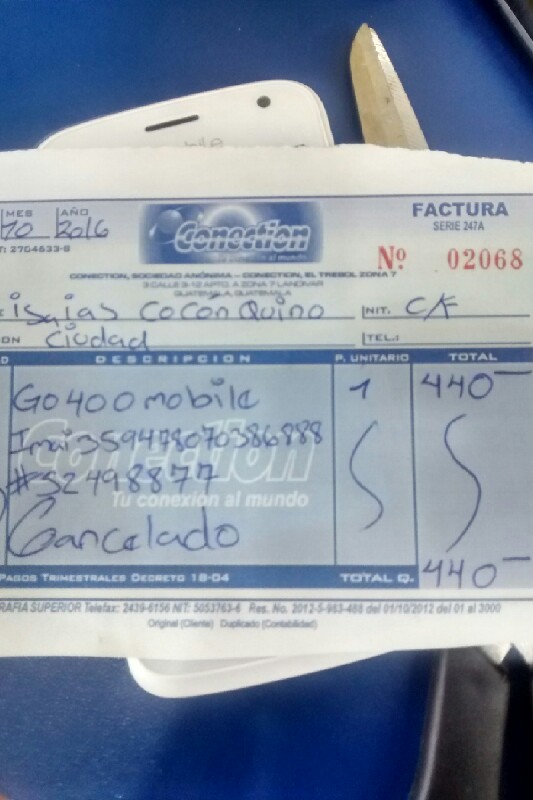 MES AÑO
10 2016
Conection
tu conexion al mundo
FACTURA
SERIE 247A
T: 2764633-8
Nº 02068
CONECTION, SOCIEDAD ANÓNIMA - CONECTION, EL TREBOL ZONA 7
3 CALLE 3-12 APTO. A ZONA 7 LANDIVAR
GUATEMALA, GUATEMALA
isaias Cocon Quino NIT. C/F
ON Ciudad TEL.:
D DESCRIPCION P. UNITARIO TOTAL
GO400mobile 1 440
Imai 359478070386888
#52498877
Conection
Tu conexion al mundo
Cancelado
PAGOS TRIMESTRALES DECRETO 18-04 TOTAL Q. 440
RAFIA SUPERIOR Telefax: 2439-6156 NIT: 5053763-6 Res. No. 2012-5-983-488 del 01/10/2012 del 01 al 3000
Original (Cliente) Duplicado (Contabilidad)